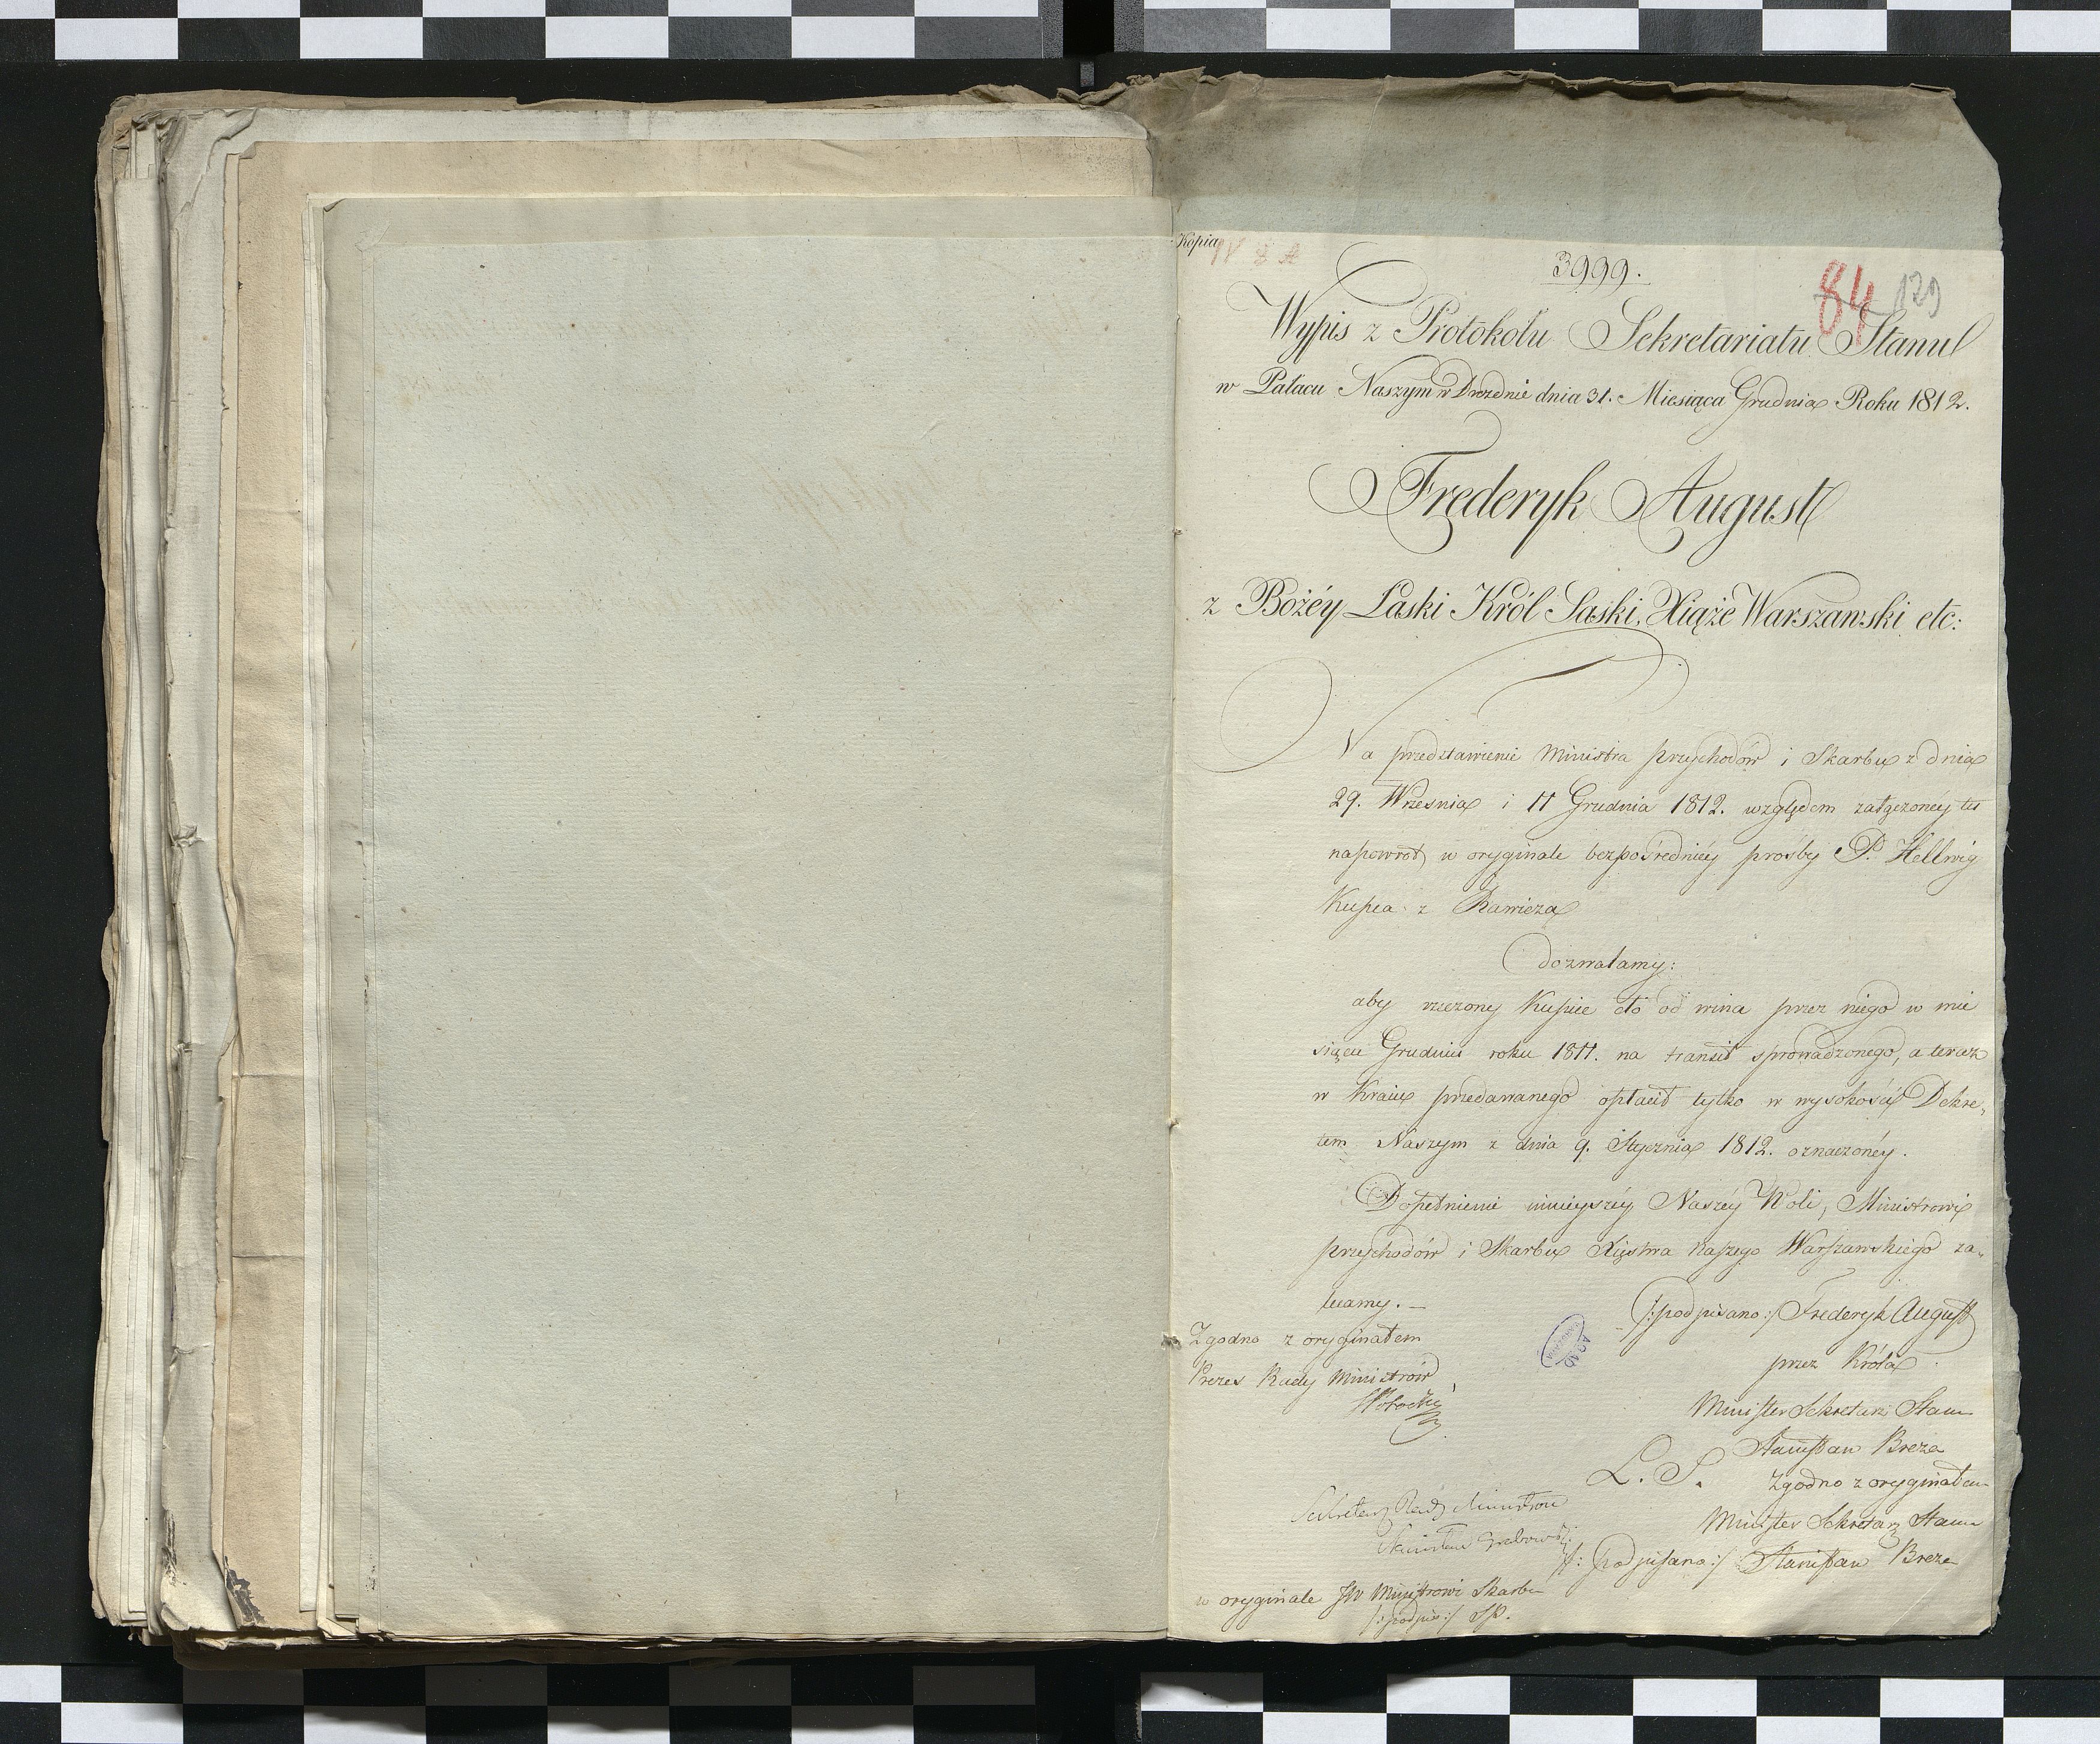 Kopia
IV 8 A
3999.
84 129
Wypis z Protokołu Sekretariatu Stanu
w Pałacu Naszym w Dreźnie dnia 31. Miesiąca Grudnia Roku 1812.
Frederyk August
z Bożéy Łaski Król Saski, Xiąże Warszawski etc:
Na przedstawienie Ministra przychodów i Skarbu z dnia
29. Września i 11 Grudnia 1812. względem załączonéy tu
napowrót w oryginale bezpośredniéy prośby P. Hellwig
Kupca z Rawicza
dozwalamy:
aby rzeczony Kupiec cło od wina przez niego w mie
siącu Grudniu roku 1811. na transit sprowadzonego, a teraz
w Kraiu przedawanego opłacił tylko w wysokości Dekre„
tem Naszym z dnia 9. Stycznia 1812. oznaczonéy.
Dopełnienie ninieyszéy Naszéy Woli, Ministrowi
przychodów i Skarbu Xięstwa Naszego Warszawskiego za„
lecamy. —
/:podpisano:/ Frederyk August
Zgodno z oryginałem
przez Króla
Prezes Rady Ministrów
Minister Sekretarz Stanu
Stanisław Breza
L. S.
Zgodno z oryginałem
Sekretarz Rady Ministrów
Minister Sekretarz Stanu
Stanisław Grabowski
/:podpisano:/ Stanisław Breza
w oryginale JW Ministrowi Skarbu
/:podpis:/ SP.